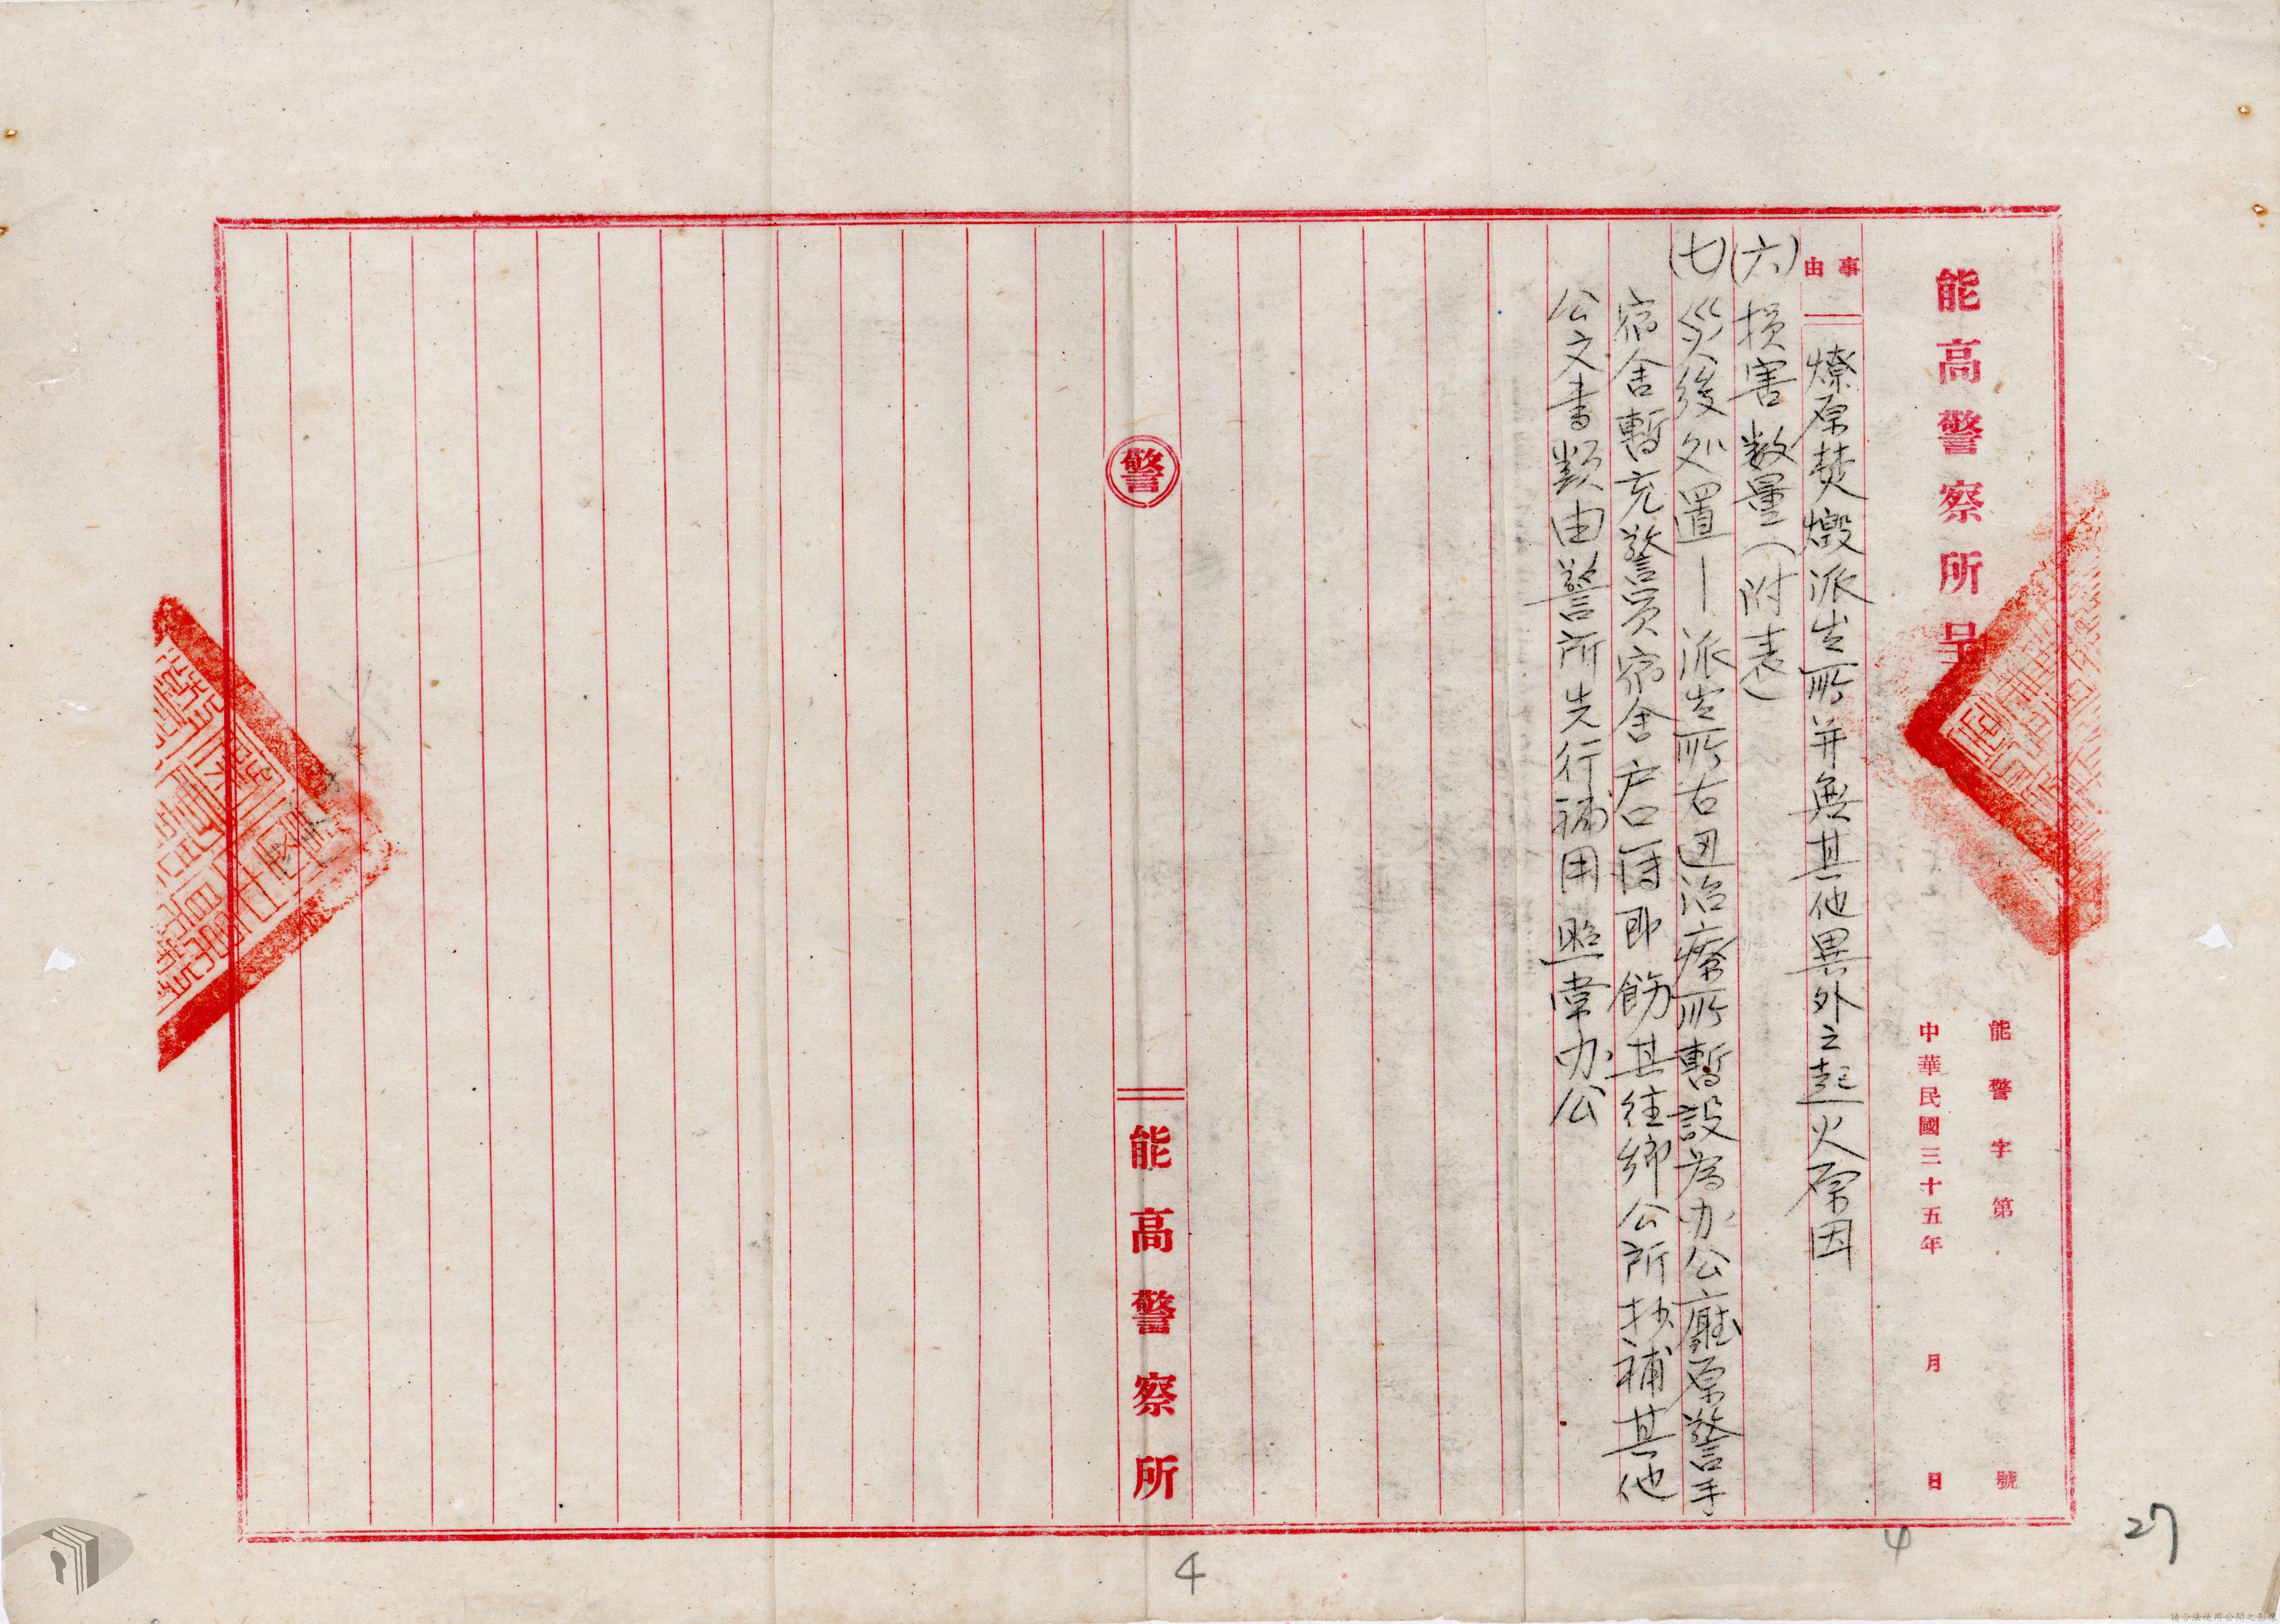 能高警察所呈
能警字第　號
中華民國三十五年　月　日
事由
燎原焚燬派出所并無其他異外之起火原因
(六)損害数量(附表)
(七)災後处置—派出所右边治療所暫設為办公廳原警手
宿舍暫充警員宿舍戶口簿即飭其往鄉公所抄補其他
公文書類由警所先行補用照常办公
警
能高警察所
27
4
4
請合法使用公開之影像